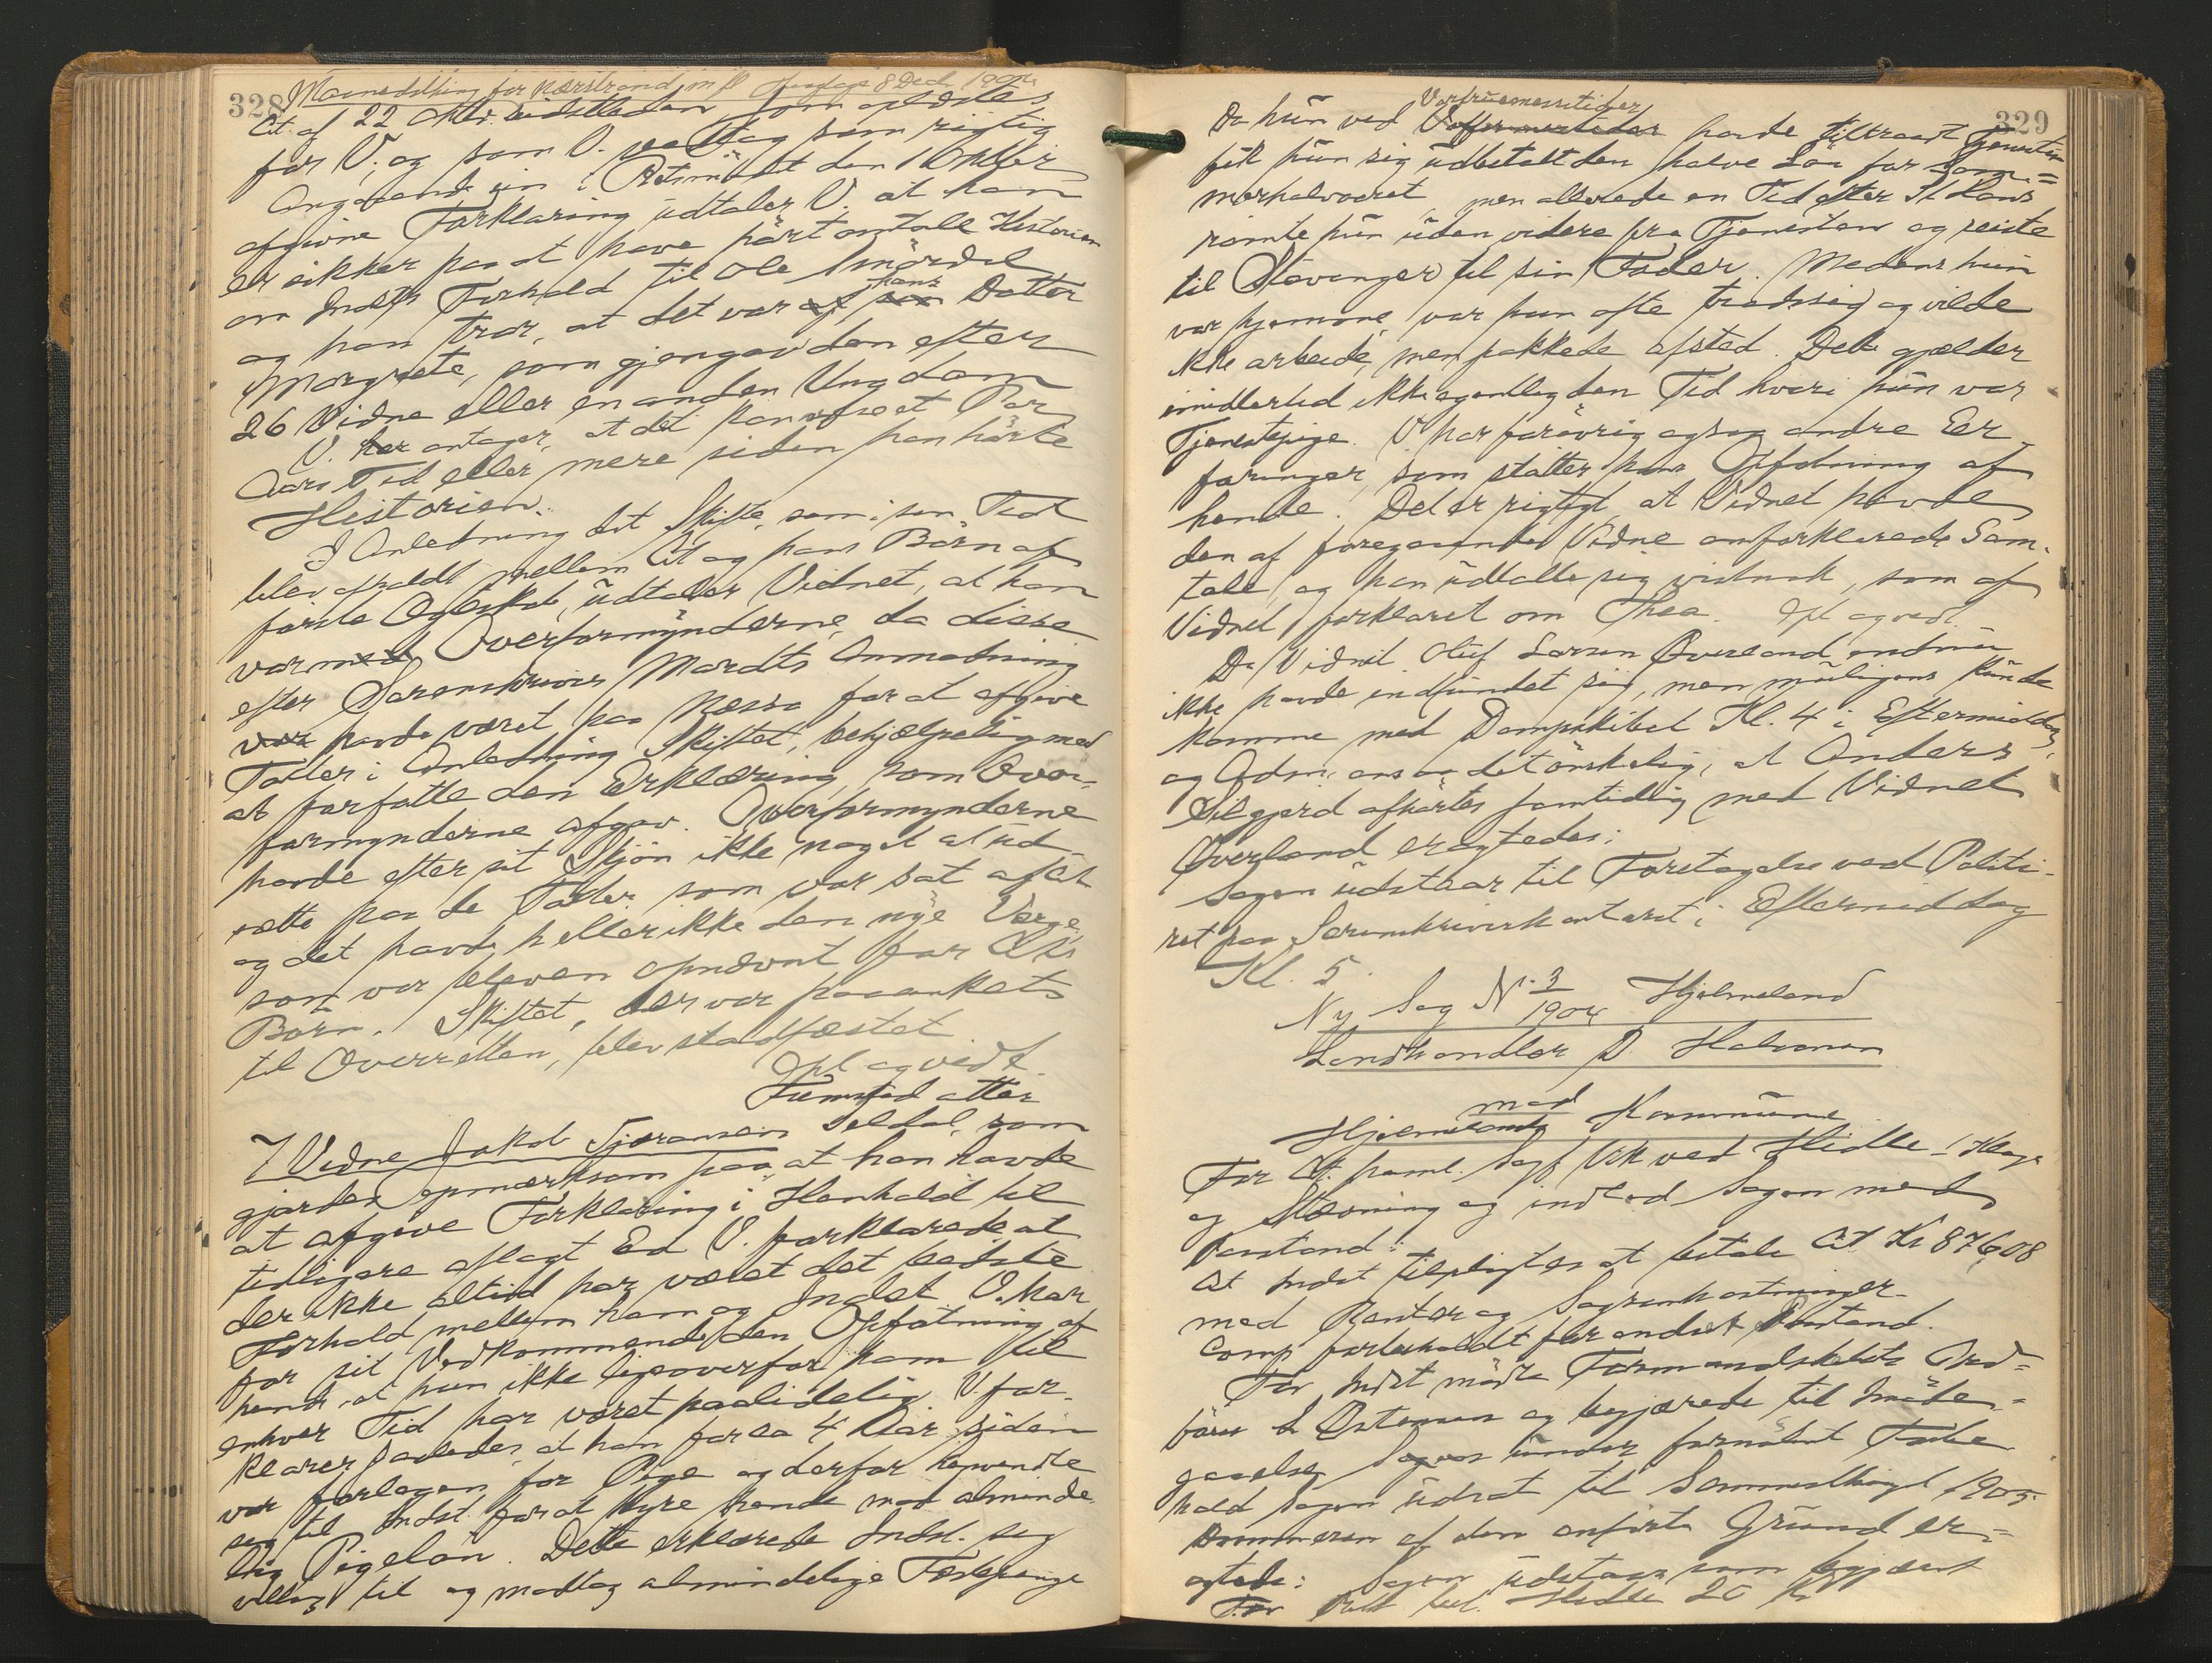 328
Maanedsthing for Nærstrand m fl Torsdag 8 Decb 1904
Cit. af 22 sidstleden som oplæstes
for V, og som V. vedtog som rigtig
Angaaende sin i Retsmødet den 1 Oktbr
afgivne Forklaring udtaler V. at han
er sikker paa at have hørt omtale Historien
om Indst's Forhold til Ole Smørdal
og han tror, at det var af hans Datter
Margrete, som gjengav den efter
26 Vidne eller en anden Ungdom
V. her antager, at det kan være et Par
Aars Tid eller mere siden han hørte
Historien.
I Anledning det Skifte, som i sin Tid
blev afholdt mellem Cit og hans Børn af
første Ægteskab, udtaler Vidnet, at han
var med Overformynderne, da disse
efter Sorenskriver Mordts Anmodning
var havde været paa Næssa for at afgive
Takster i Anledning Skiftet, behjælpelig med
at forfatte den Erklæring, som Over-
formynderne afgav. Overformynderne
havde efter sit Skjøn ikke noget at ud-
sætte paa de Takster som var sat af Cit
og det havde heller ikke den nye Værge
som var bleven opnævnt for Cits
Børn. Skiftet, der var paaanket
til Overretten, blev stadfæstet
Opl og vedt.
Fremstod atter
7 Vidne Jakob Tjøransen Seldal, som
gjordes opmærksom paa, at han havde
at afgive Forklaring i Henhold til
tidligere aflagt Ed V. forklarede, at
der ikke altid har været det bedste
Forhold mellem ham og Indst V. har
for sit Vedkommende den Opfatning af
hende, at hun ikke ligeoverfor ham til
enhver Tid har været paalidelig V. for-
klarer saaledes, at han for ca 4 Aar siden
var forlegen for Pige og derfor henvendte
sig til Indst. for at hyre hende mod alminde-
lig Pigeløn. Dette erklærede Indst. sig
villig til og modtog almindelige Fæstepenge
329
Vorfruemessetider
Da hun ved havde tiltraadt Tjenesten
fik hun sig udbetalt den halve Løn for Som=
merhalvaaret, men allerede en Tid efter St Hans
rømte hun uden videre fra Tjenesten og reiste
til Stavanger til sin Fader. Medens hun
var hjemme, var hun ofte trodsig og vilde
ikke arbeide, men pakkede afsted. Dette gjælder
imidlertid ikke egentlig den Tid hvori hun var
Tjenestepige. V. har forøvrig ogsaa andre Er-
faringer, som støtter hans Opfatning af
hende. Det er rigtigt, at Vidnet havde
den af foregaaende Vidne omforklarede Sam-
tale, og han udtalte sig vistnok, som af
Vidnet forklaret om Thea. Opl og vedt.
Da Vidnet Oluf Larsen Øverland endnu
ikke havde indfundet sig, men muligens kunde
komme med Dampskibet Kl. 4 i Eftermiddag,
og Adm. ansaa det ønskelig, at Anders
Eilgjerd afhørtes samtidig med Vidnet
Øverland eragtedes:
Sagen udstaar til Foretagelse ved Politi-
ret paa Sorenskriverkontoret i Eftermiddag
Kl. 5
Ny Sag N. 3/1904 Hjelmeland
Landhandler D. Halvorsen
mod
Hjelmelands Kommune
For Cit. freml. Sagf. Vik ved Hidle 1 Klage
og Stævning og indlod Sagen med
Paastand:
At Indst tilpligtes at betale Cit Kr 876,08
med Renter og Sagsomkostninger.
Comp forbeholdt forandret Paastand.
For Indst mødte Formandskabets Ord=
fører L Østerhus og begjærede til Imøde=
gaaelse Sagen under fornødent Forbe
hold Sagen udsat til Sommerthinget 1905.
Dommeren af den anførte Grund er=
agtede: Sagen udstaar som begjært
For bet. Hidle 20 Kr